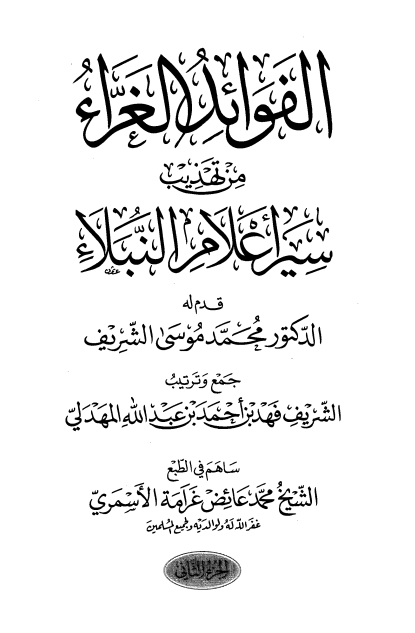 الفَوَائِدُ الغَرَّاءُ
مِنْ تَهْذِيبِ
سِيَرِ أَعْلَامِ النُّبَلَاءِ
قدم له
الدكتور محمّد موسى الشريف
جمع وترتيب
الشريف فهد بن أحمد بن عبد الله المهدلي
ساهم في الطبع
الشيخ محمد عائض غرامة الأسمري
غفر الله له ولوالديه ولجميع المسلمين
الجزء الثاني